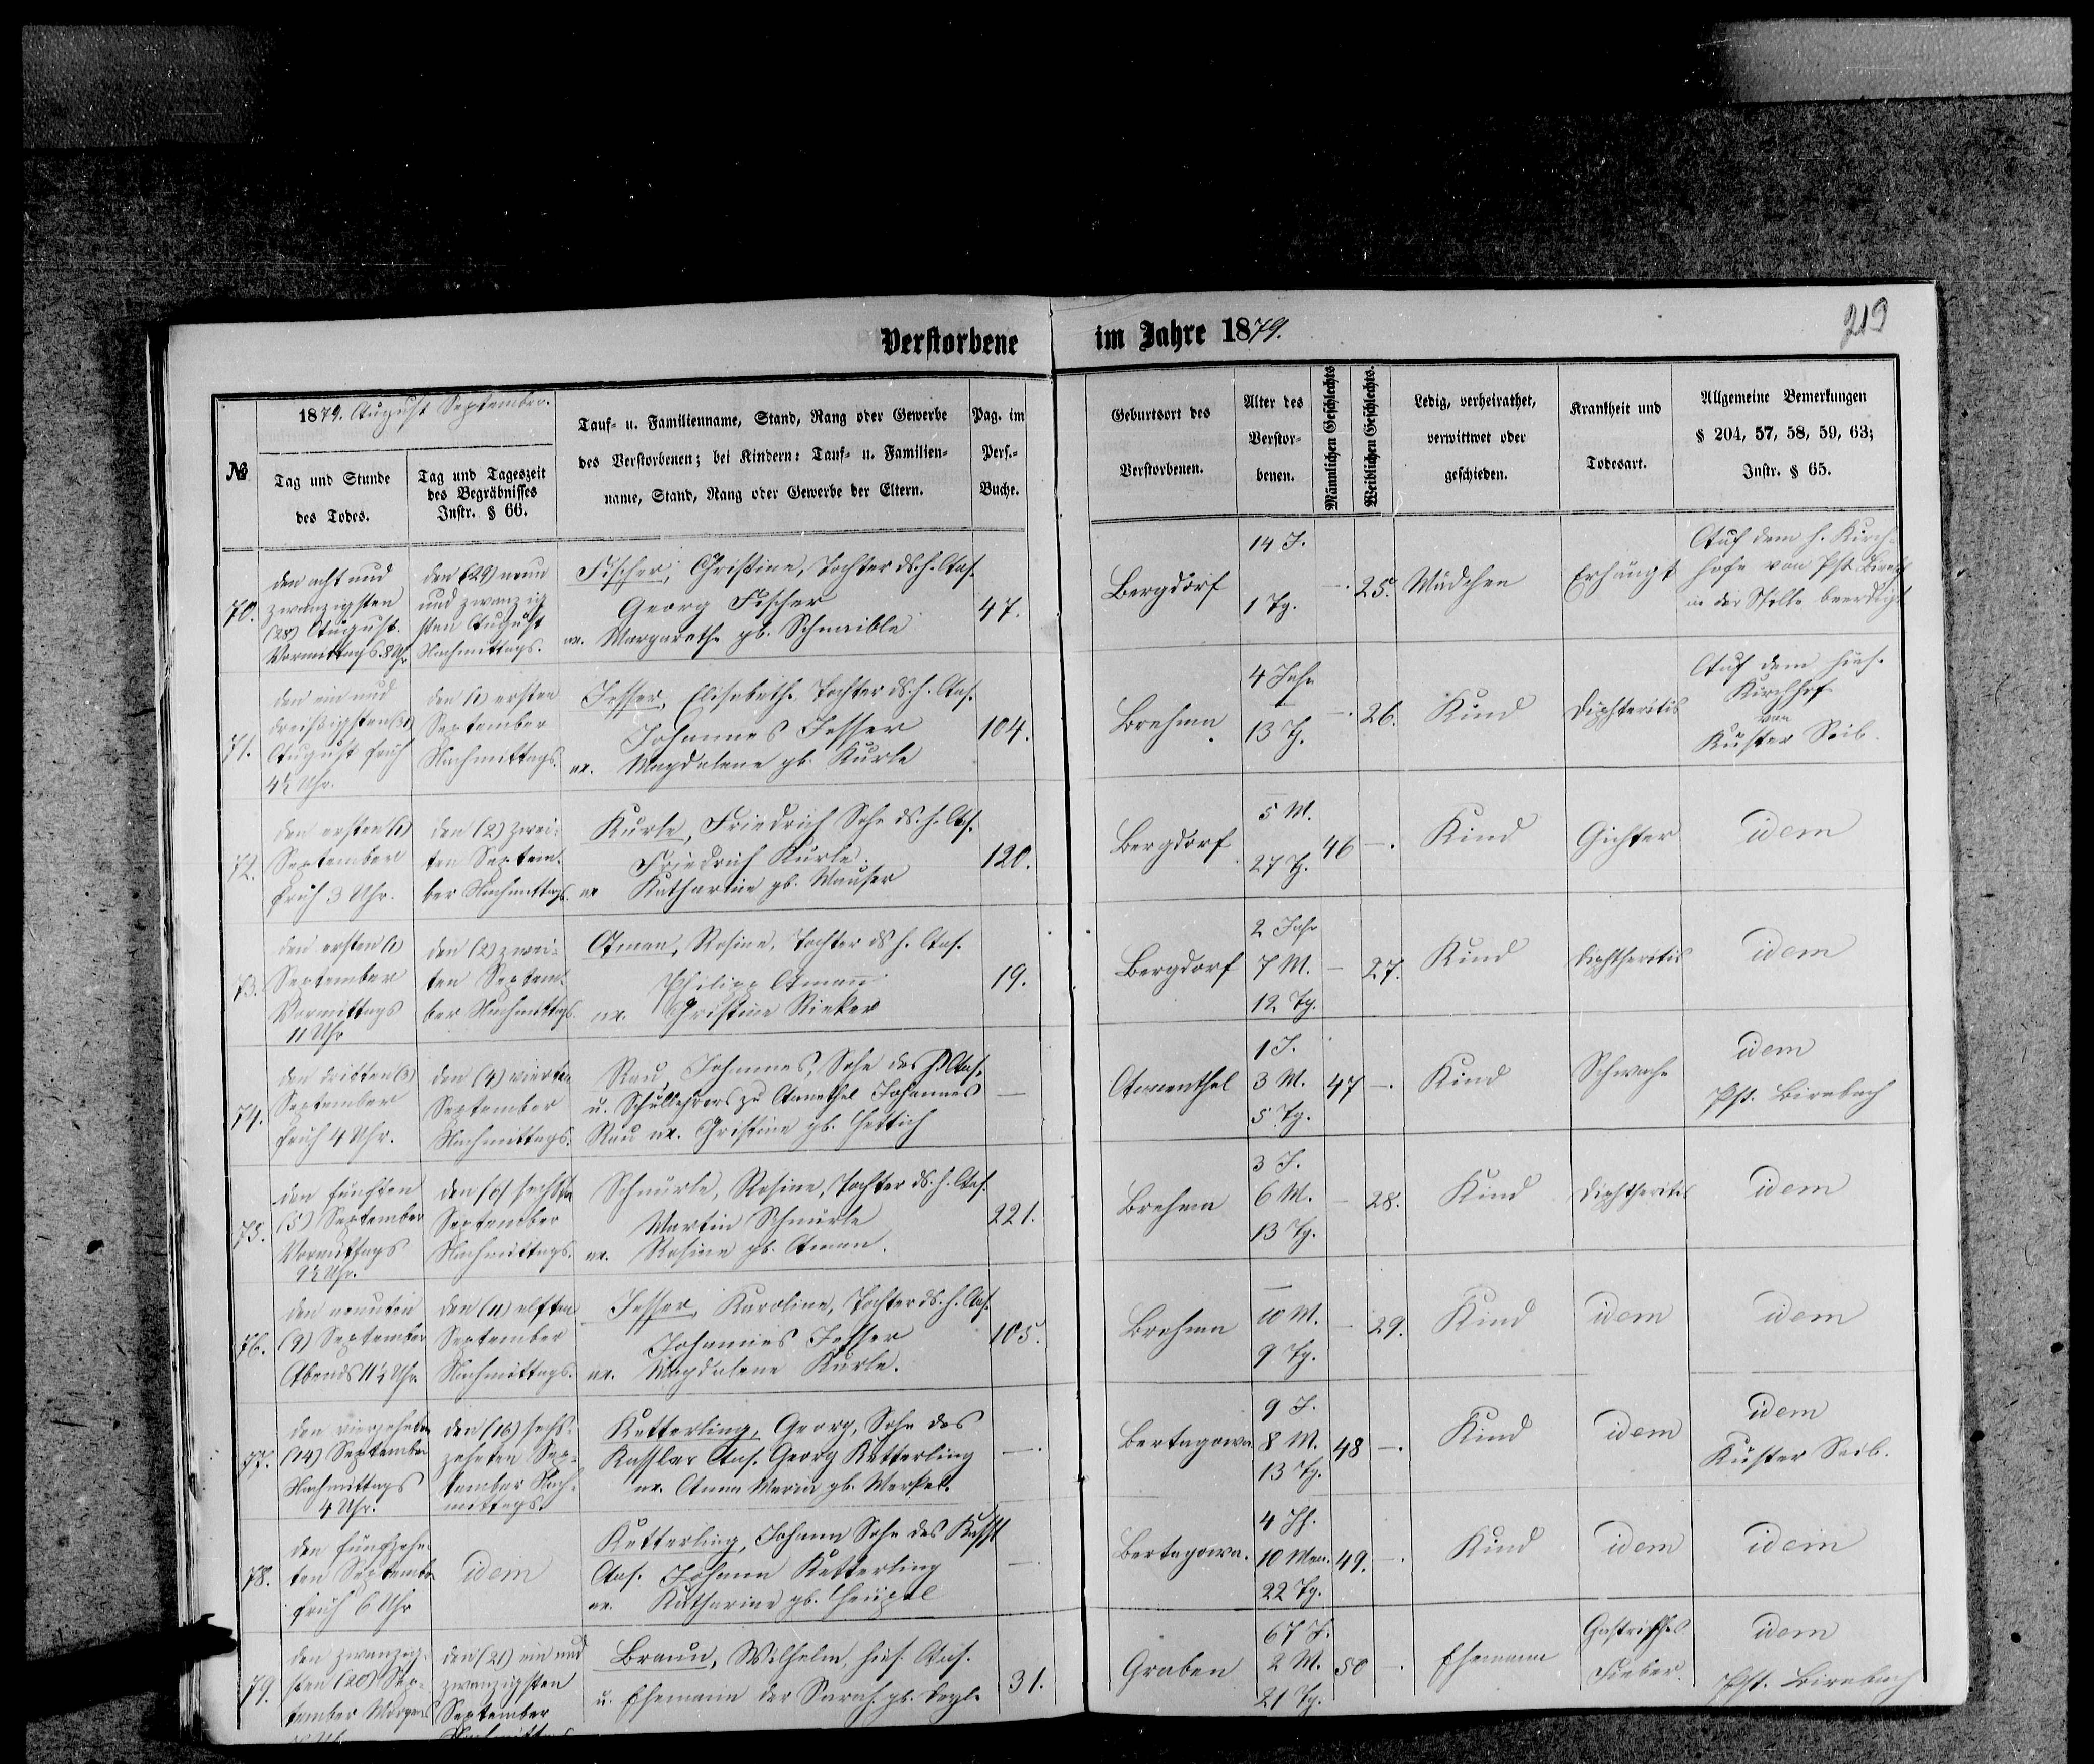 Verstorbene im Jahre 1879.
213
№
1879. August September.
Tag und Stunde
des Todes.
Tag und Tageszeit
des Begräbnisses
Instr. § 66.
Tauf- u. Familienname, Stand, Rang oder Gewerbe
des Verstorbenen; bei Kindern: Tauf- u. Familien-
name, Stand, Rang oder Gewerbe der Eltern.
Pag. im
Pers.-
Buche.
Geburtsort des
Verstorbenen.
Alter des
Verstor-
benen.
Männlichen Geschlechts
Weiblichen Geschlechts.
Ledig, verheirathet,
verwittwet oder
geschieden.
Krankheit und
Todesart.
Allgemeine Bemerkungen
§ 204, 57, 58, 59, 63;
Instr. § 65.
70.
den acht und
zwanzigsten
(28) August.
Vormittags 8 Uhr
den (29) neun
und zwanzig
sten August
Nachmittags.
Fischer, Christine, Tochter ds. h. Ans.
Georg Fischer
ux. Margarethe gb. Schnaible
47.
Bergdorf
14 J.
1 Tg.
25.
Mädchen
Erhängt
Auf dem h. Kirch-
hofe von Pst. Birnb.
in der Stille beerdigt
71.
den ein und
dreißigsten (31)
August früh
4½ Uhr.
den (1) ersten
September
Nachmittags.
Jesser, Elisabeth. Tochter ds. h. Ans.
Johannes Jesser
ux. Magdalena gb. Kurle
104.
Brehma
4 Jahr
13 T.
26.
Kind
Diphteritis
Auf dem hies.
Kirchhof
von
Küster Seib.
72.
den ersten (1)
September
früh 3 Uhr.
den (2) zwei-
ten Septem-
ber Nachmittags.
Kurle, Friedrich Sohn ds. h. Ans.
Friedrich Kurle.
ux Katharine gb. Mauser
120.
Bergdorf
5 M.
27 T.
46 —.
Kind
Gichter
idem
73.
den ersten (1)
September
Vormittags
11 Uhr
den (2) zwei-
ten Septem-
ber Nachmittags.
Aman, Rosine, Tochter ds h. Ans.
Philipp Aman
ux. Christine Rieker
19.
Bergdorf
2 Jahr
7 M.
12 Tg.
— 27.
Kind
Diphtheritis
idem
74.
den dritten (3)
September
früh 4 Uhr.
den (4) vierten
September
Nachmittags.
Rau, Johannes, Sohn des h. Ans.
u. Schullehrers zu Annenthal Johannes
Rau ux. Christine gb. Hettich
—
Annenthal
1 J.
3 M.
5 Tg.
47 —.
Kind
Schwäche
idem
Pst. Birnbach
75.
den fünften
(5) September
Vormittags
9½ Uhr.
den (6) sechsten
September
Nachmittags.
Schnürle, Rosine, Tochter ds. h. Ans.
Martin Schnürle
ux. Rosine gb. Aman.
221.
Brehma
3 J.
6 M.
13 Tg.
— 28.
Kind
Diphtheritis
idem
76.
den neunten
(9) September
Abends 11½ Uhr.
den (11) elften
September
Nachmittags.
Jesser, Karoline, Tochter ds. h. Ans.
Johannes Jesser
ux. Magdalena Kurle.
105.
Brehma
10 M.
9 Tg.
— 29.
Kind
idem
idem
77.
den vierzehnten
(14) September
Nachmittags
4 Uhr.
den (16) sechs-
zehnten Sep-
tember Nach-
mittags.
Ketterling, Georg, Sohn des
Kassler Ans. Georg Ketterling
ux. Anna Maria gb. Merkel.
—.
Bertagowa
9 J.
8 M.
13 Tg.
48 —.
Kind
idem
idem
Küster Seib.
78.
den fünfzehn-
ten September
früh 6 Uhr
idem
Ketterling, Johann Sohn des Kassl
Ans. Johann Ketterling
ux. Katharine gb. Heupel
—.
Bertagowa.
4 Jh.
10 Mon.
22 Tg.
49. —.
Kind
idem
idem
79.
den zwanzig-
sten (20) Sep-
tember Morgens
den (21) ein und
zwanzigsten
September
Braun, Wilhelm, hies. Ans.
u. Ehemann der Sarah gb.
31.
Graben
67 J.
2 M.
21 Tg.
50 —.
Ehemann
Gastrisches
Fieber.
idem
Pst. Birnbach